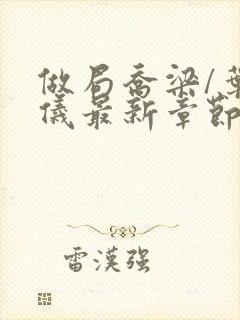 做局喬梁/葉
儀最新章節
雷漢强